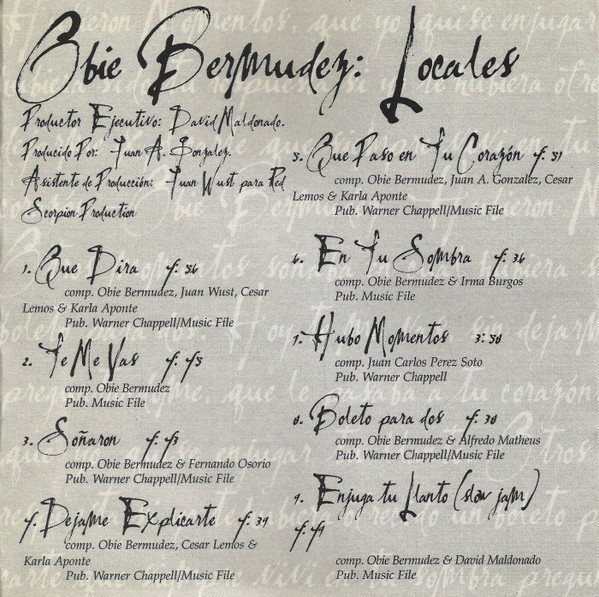 Obie Bermudez: Locales
Productor Ejecutivo: David Maldonado.
Producido Por: Juan A. Gonzalez.
Asistente de Producción: Juan Wust para Red
Scorpion Production
1. Que Dira 4:56
comp. Obie Bermudez, Juan Wust, Cesar
Lemos & Karla Aponte
Pub. Warner Chappell/Music File
2. Te Me Vas 4:45
comp. Obie Bermudez
Pub. Music File
3. Soñaron 4:43
comp. Obie Bermudez & Fernando Osorio
Pub. Warner Chappell/Music File
4. Dejame Explicarte 4:39
comp. Obie Bermudez, Cesar Lemos &
Karla Aponte
Pub. Warner Chappell/Music File
5. Que Paso en Tu Corazón 4:51
comp. Obie Bermudez, Juan A. Gonzalez, Cesar
Lemos & Karla Aponte
Pub. Warner Chappell/Music File
6. En Tu Sombra 4:36
comp. Obie Bermudez & Irma Burgos
Pub. Music File
7. Hubo Momentos 3:58
comp. Juan Carlos Perez Soto
Pub. Warner Chappell
8. Boleto para dos 4:38
comp. Obie Bermudez & Alfredo Matheus
Pub. Warner Chappell/Music File
9. Enjuga tu Llanto (slow jam)
4:49
comp. Obie Bermudez & David Maldonado
Pub. Music File